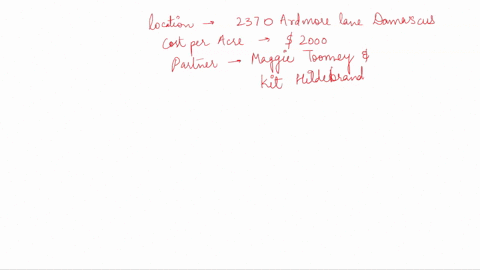 location → 2370 Ardmore lane Damascus
Cost per Acre → $ 2000
Partner → Maggie Toomey &
Kit Hildebrand